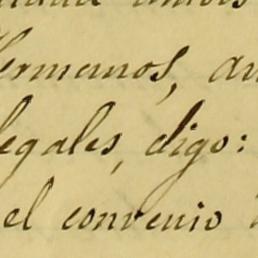 Hermanos, an
legales, digo:
el convenio